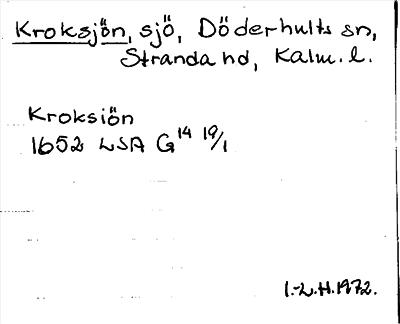 Kroksjön, sjö, Döderhults sn,
Stranda hd, Kalm. l.
Kroksiön
1652 LSA G14 19/1
I.-L.H. 1972.